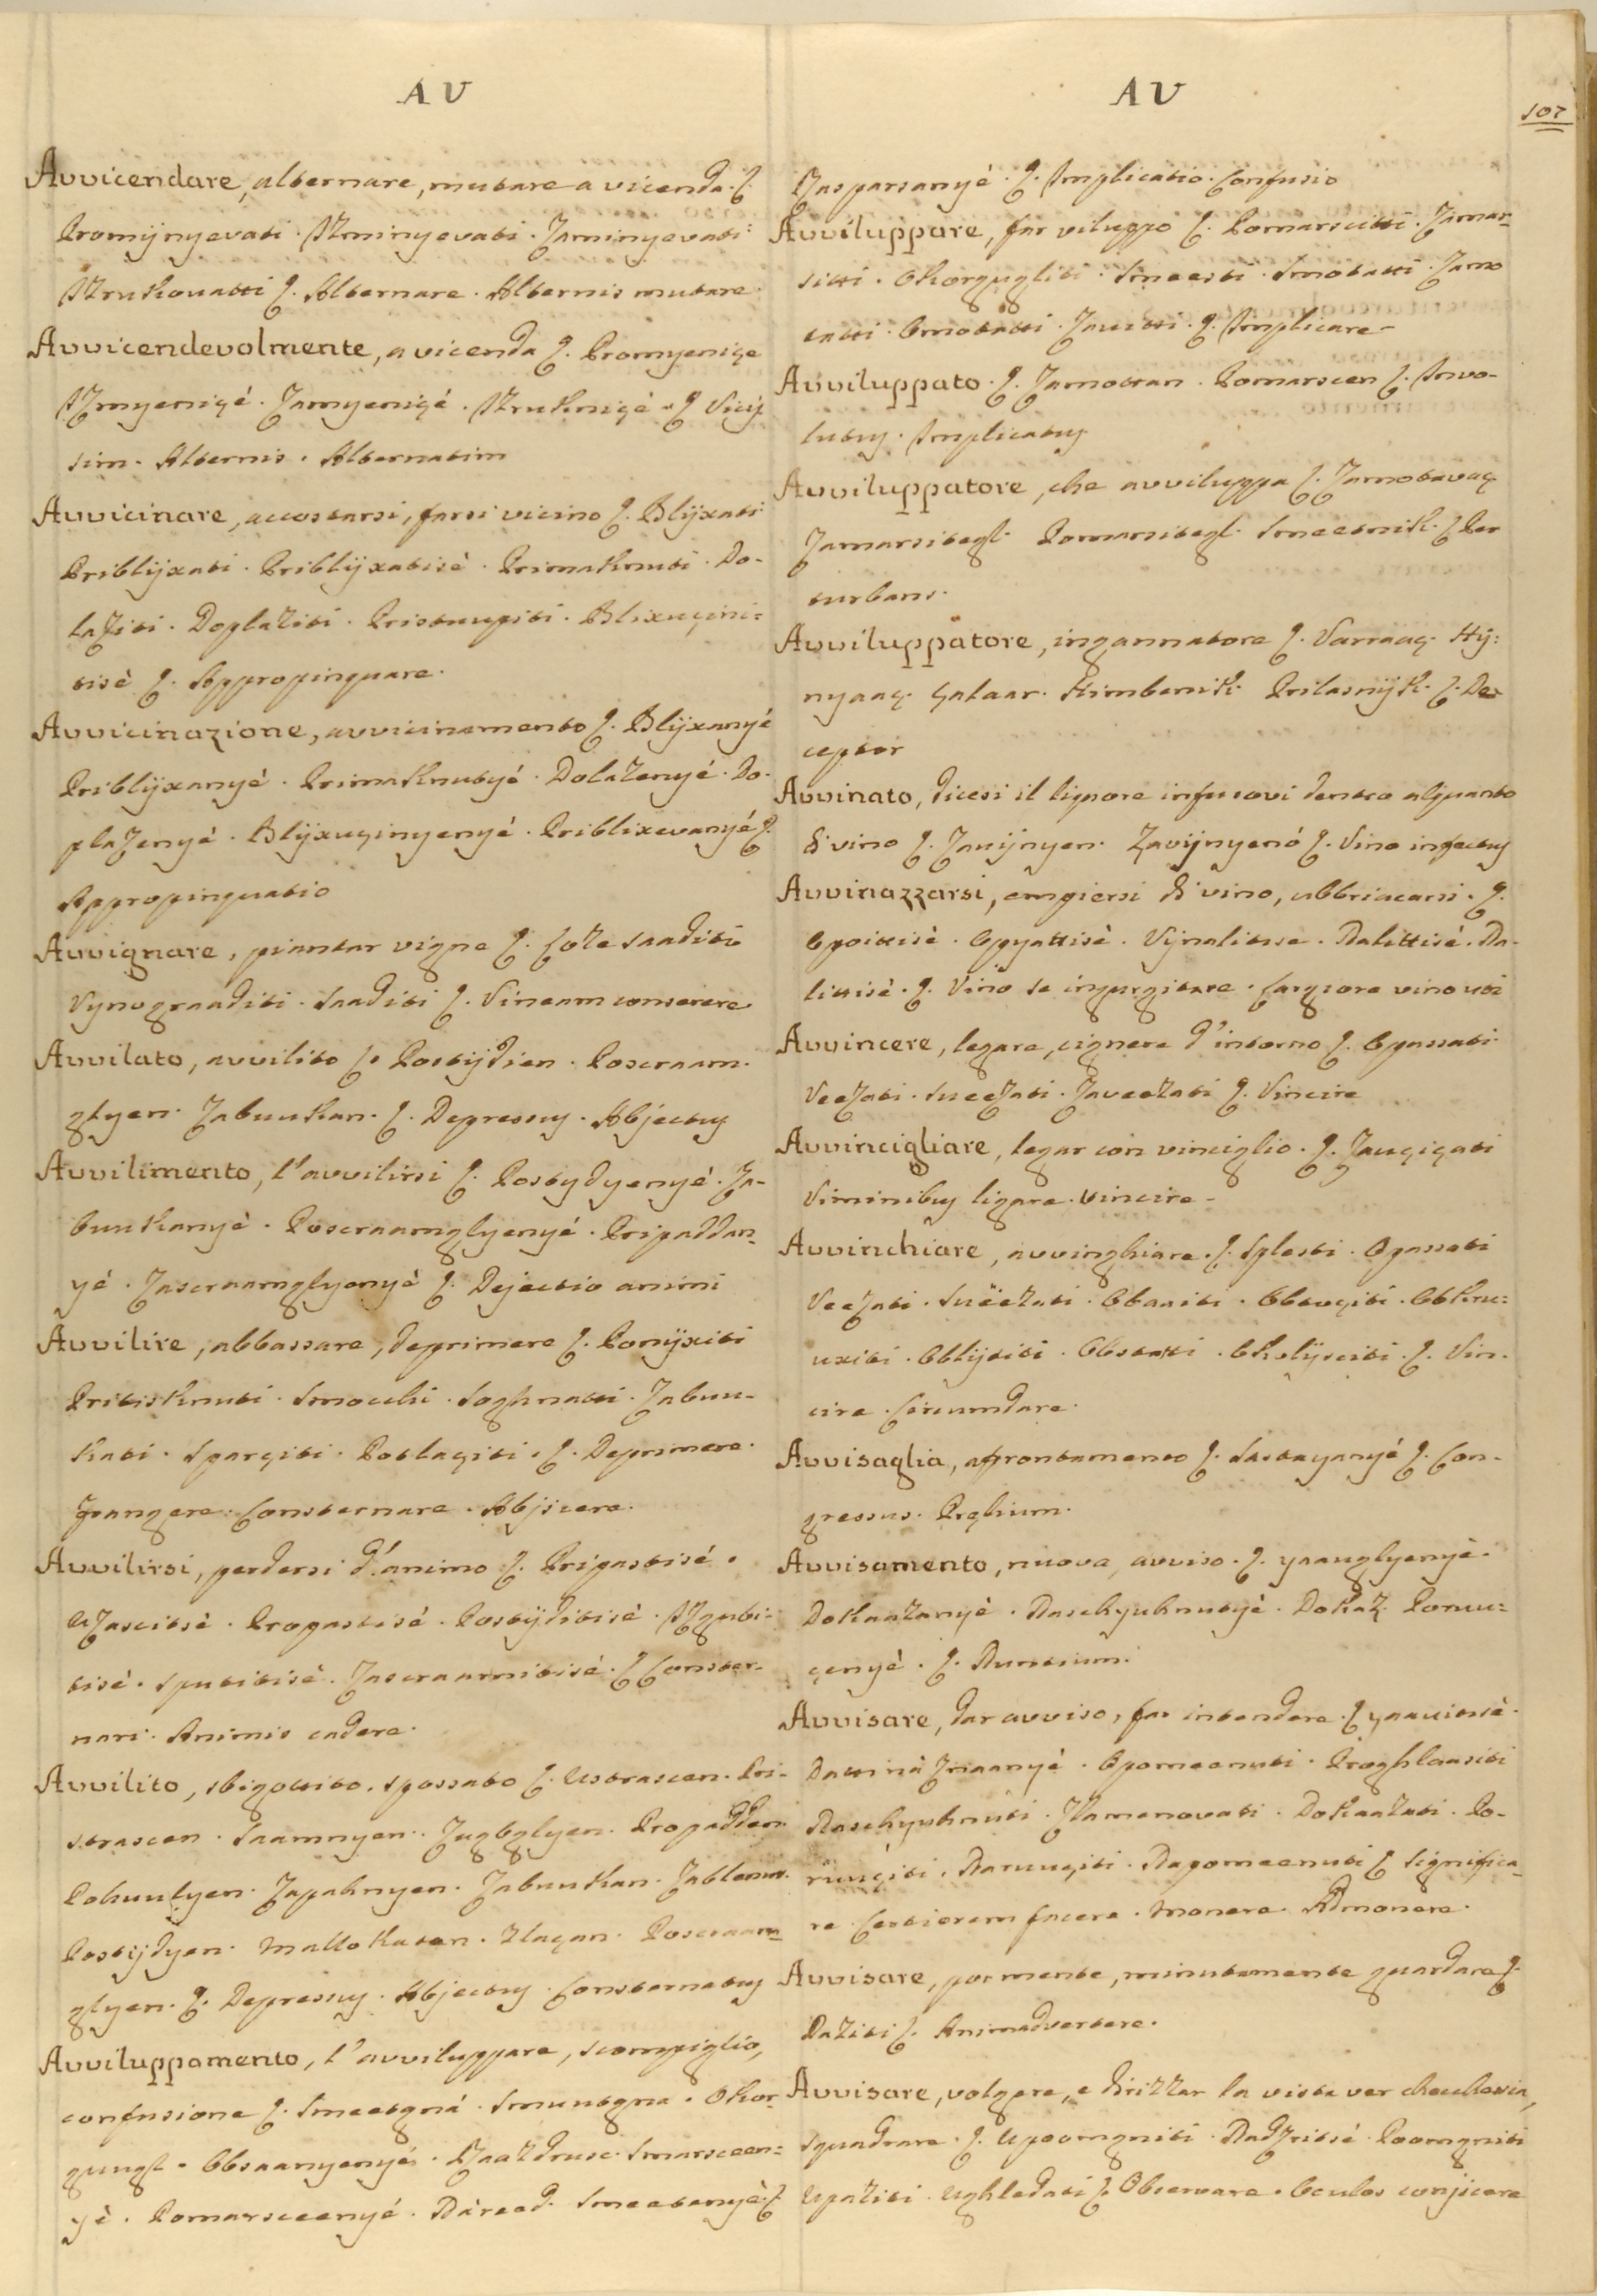 AU
Avvicendare, alternare, mutare a vicenda. ſ.
Promijnyevati. Izminyevati. Zaminyevati.
Izrukovatti ſ. Alternare. Alternis mutare.
Avvicendevolmente, a vicenda ſ. Promyeniçe
Izmyeniçé. Zamyeniçé. Izrukniçé. ſ Vicis
sim. Alternis. Alternatim
Avvicinare, accostarsi, farsi vicino ſ. Blijxati
Priblijxati. Priblijxatisè. Primaknuti. Do-
laziti. Doplaziti. Pristuupiti. Blixuçini=
tisè ſ. Appropinquare.
Avvicinazione, avvicinamento ſ. Blijxanyé
Priblijxanyè. Primaknutyé. Dolazenyé. Do-
plazenyé. Blijxuçinyenyé. Priblixevanyé ſ.
Appropinquatio
Avvignare, piantar vigne ſ. Loze saaditi
Vynograaditi. Saaditi ſ. Vineam conserere
Avvilato, avvilito ſ. Postijdien. Poscraam-
glyen. Zabuukan. ſ. Depressus. Abjectus
Avvilimento, l'avvilirsi ſ. Postydyenyè. Za-
buukanyè. Poscraamglyenyé. Pripaddan-
yé. Zascraamglyenyè ſ. Dejectio animi
Avvilire, abbassare, deprimere ſ. Ponijxiti
Pritisknuti. Smocchi. Soghnatti. Zabuu-
kati. Sparçiti. Potlaçiti. ſ. Deprimere.
Frangere. Consternare. Abjicere.
Avvilirsi, perdersi d'animo ſ. Pripastisé.
Uzascitsè. Propastisé. Postijditisè. Izgubi-
tisè. Sputitisè. Zascraamitisé. ſ Conster-
nari. Animis cadere.
Avvilito, sbigottito. spossato ſ. Ustrascen. Pri-
strascen. Saamnyen. Zugbglyen. Propadden.
Pohuulyen. Zapahnyen. Zabuukan.
Postijdyen. Mallokatan. Zlaçan. Poscraam-
glyen. ſ. Depressus. Abjectus. Consternatus
Avviluppamento, l'avviluppare, scompiglio,
confusione ſ. Smeetgná. Smuutgna. Okor-
guugl. Obsaanyenyé. Raazdruse. Smarsceen=
yè. Pomarsceenyé. Dáreed. Smeetenyè. ſ
AU
107
Rasparsanyè. ſ. Implicatio. Confusio
Avviluppare, far viluppo ſ. Pomarscitti. Zamar-
sitti. Okorgugliti. Smeesti. Smotatti. Zamo
tatti. Omotatti. Zavitti. ſ. Implicare
Avviluppato. ſ. Zamottan. Pomarscen ſ. Invo-
lutus. Implicatus
Avviluppatore, che avviluppa ſ. Zamotavaç
Zamarsitegl. Pomarsitegl. Smeetnik. ſ Per
turbans.
Avviluppatore, ingannatore ſ. Varraaç. Hij=
nyaaç. Çalaar. Himbenik. Prilasnijk. ſ. De-
ceptor
Avvinato, dicesi il liquore infusovi dentro alquanto
di vino ſ. Zavijnyen. Zavijnyenó ſ. Vino infectus
Avvinazzarsi, empiersi di vino, ubbriacarsi. ſ.
Opoittisè. Opyattisè. Vijnalitise. Nalittisé. Na-
littisè. ſ. Vino se ingurgitare. Largiore vino uti
Avvincere, legare, cignere d'intorno ſ. Opassati.
Veezati. Sveezati. Zaveezati ſ. Vincire
Avvincigliare, legar con vinciglio. ſ. Zauçiçati
Viminibus ligare. Vincire
Avvinchiare, avvinghiare. ſ. Splesti. Opassati
Veezati. Svëezati. Obaviti. Obtoçiti. Obkru=
uxiti. Oblijtiti. Obstatti. Okolijsciti. ſ. Vin-
cire. Circumdare.
Avvisaglia, affrontamento ſ. Sastayanyé ſ. Con-
gressus. Prælium.
Avvisamento, nuova, avviso. ſ. yaauglyenyè.
Dokaazanyè. Naschyuhnutyè. Dokaz. Poruu=
çenyè. ſ. Nuntium.
Avvisare, dar avviso, far intendere. ſ yaavitisè.
Dattinà znaanyè. Opomeenuti. Proghlaasiti
Naschyuhnuti. Zlamenovati. Dokaazati. Po-
ruuçiti. Naruuçiti. Napomeenuti ſ Significa-
re. Certiorem facere. Monere. Admonere.
Avvisare, por mente, minutamente guardare ſ.
Paziti ſ. Animadvertere.
Avvisare, volgere, e drizzar la vista ver checchesia,
squadrare. ſ. Upoomgniti. Nadzritisè. Poomgniti
Upaziti. Ughledati ſ. Observare. Oculos conjicere